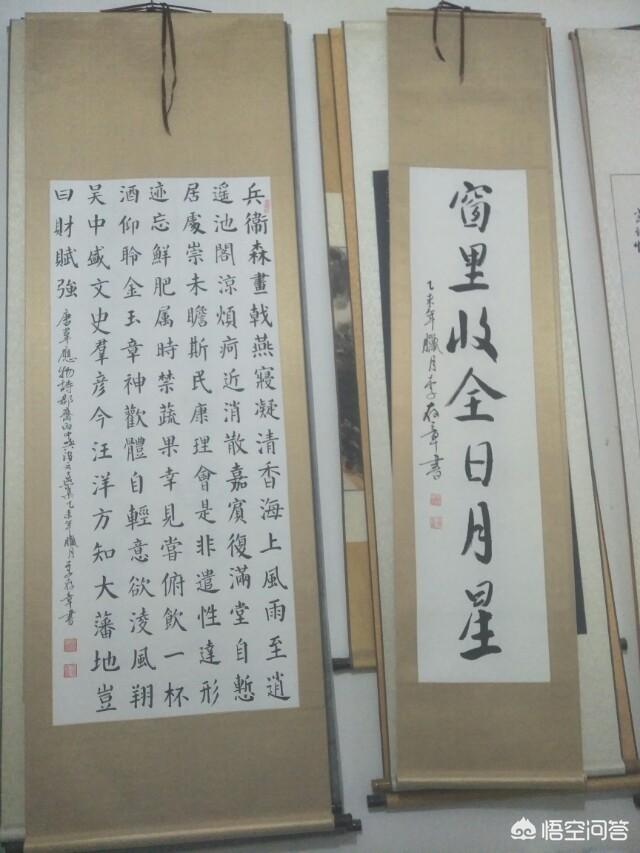 窗里收全日月星
乙未年臘月李存章書
兵衛森畫戟燕寢凝清香海上風雨至逍
遥池閣涼煩疴近消散嘉賓復滿堂自慙
居處崇未瞻斯民康理會是非遣性達形
迹忘鮮肥属時禁蔬果幸見嘗俯飲一杯
酒仰聆金玉章神歡體自輕意欲淩風翔
吴中盛文史羣彦今汪洋方知大藩地豈
曰財賦強
唐韋應物詩郡齋雨中與諸文士燕集乙未年臘月李存章書
悟空问答